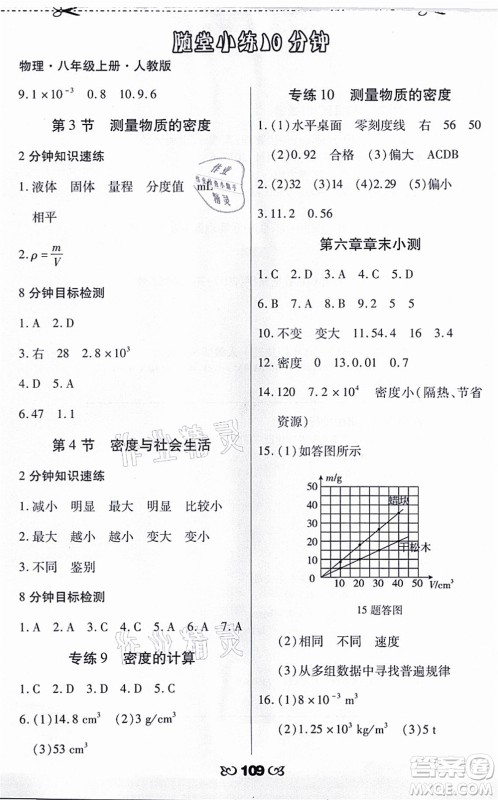 随堂小练10分钟
物理·八年级上册·人教版
9.1×10⁻³ 0.8 10.9.6
第3节 测量物质的密度
2分钟知识速练
1.液体 固体 量程 分度值 mL
相平
2.ρ=m/V
8分钟目标检测
1.A 2.D
3.右 28 2.8×10³
4.D 5.D
6.47 1.1
第4节 密度与社会生活
2分钟知识速练
1.减小 明显 最大 明显 比较小
2.最大 越小 越小 变大 变小
3.不同 鉴别
8分钟目标检测
1.A 2.A 3.C 4.B 5.A 6.A 7.A
专练9 密度的计算
1.C 2.C 3.A 4.C 5.C
6.(1)14.8 cm³ (2)5 cm³
(3)53 cm³
专练10 测量物质的密度
1.(1)水平桌面 零刻度线 右 56 50
(2)0.92 合格 (3)偏大 ACDB
2.(2)32 (3)14 (4)2.29 (5)偏小
3.11.2 0.56
第六章章末小测
1.C 2.C 3.D 4.D 5.A 6.C
7.B 8.B 9.2 5 5
10.不变 变大 11.54.4 16
12.密度 0 13.0.01 0.7
14.120 7.2×10⁴ 密度小(隔热、节省
资源)
15.(1)如答图所示
m/g
50
40
30
20
10
0
10 20 30 40 50
V/cm³
蜡块
干松木
15题答图
(2)相同 不同 速度
(3)从多组数据中寻找普遍规律
16.(1)8×10⁻³ m³
(2)1.25×10³ kg/m³ (3)5 t
109
作业精灵
作业精灵
答案圈
MXQE.COM